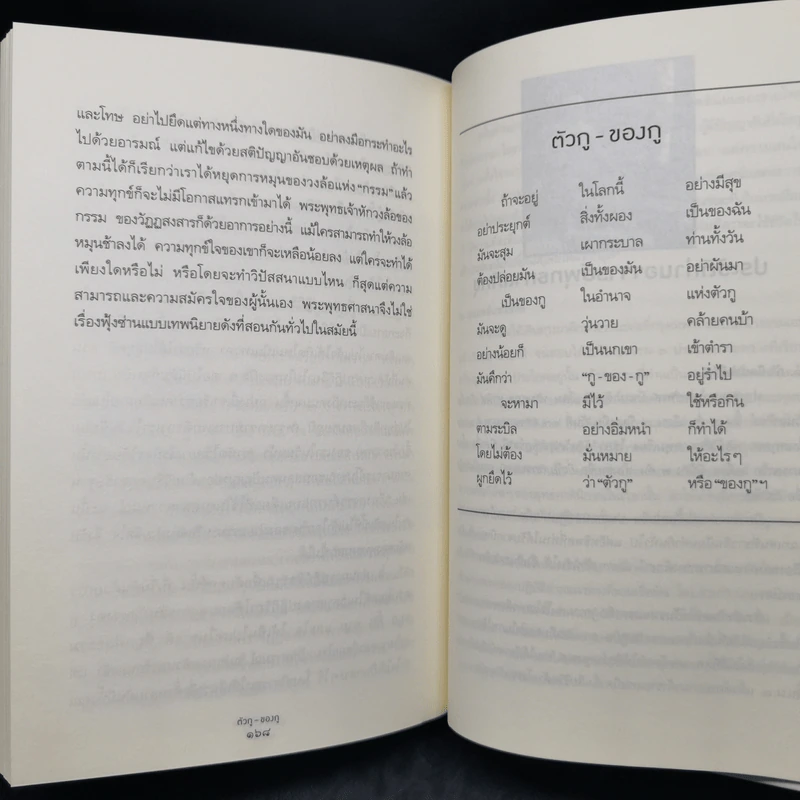 และโทษ อย่าไปยึดแต่ทางหนึ่งทางใดของมัน อย่าลงมือกระทำอะไร
ไปด้วยอารมณ์ แต่แก้ไขด้วยสติปัญญาอันชอบด้วยเหตุผล ถ้าทำ
ตามนี้ได้ก็เรียกว่าเราได้หยุดการหมุนของวงล้อแห่ง “กรรม” แล้ว
ความทุกข์ก็จะไม่มีโอกาสแทรกเข้ามาได้ พระพุทธเจ้าหักวงล้อของ
กรรม ของวัฏฏสงสารก็ด้วยอาการอย่างนี้ แม้ใครสามารถทำให้วงล้อ
หมุนช้าลงได้ ความทุกข์ใจของเขาก็จะเหลือน้อยลง แต่ใครจะทำได้
เพียงใดหรือไม่ หรือโดยจะทำวิปัสสนาแบบไหน ก็สุดแต่ความ
สามารถและความสมัครใจของผู้นั้นเอง พระพุทธศาสนาจึงไม่ใช่
เรื่องฟุ้งซ่านแบบเทพนิยายดังที่สอนกันทั่วไปในสมัยนี้
ตัวกู - ของกู
๑๖๘
ตัวกู - ของกู
ถ้าจะอยู่ ในโลกนี้ อย่างมีสุข
อย่าประยุกต์ สิ่งทั้งผอง เป็นของฉัน
มันจะสุม เผากระบาล ท่านทั้งวัน
ต้องปล่อยมัน เป็นของมัน อย่าผันมา
เป็นของกู ในอำนาจ แห่งตัวกู
มันจะดู วุ่นวาย คล้ายคนบ้า
อย่างน้อยก็ เป็นนกเขา เข้าตำรา
มันคึกว่า “กู - ของ - กู” อยู่ร่ำไป
จะหามา มีไว้ ใช้หรือกิน
ตามระบิล อย่างอิ่มหนำ ก็ทำได้
โดยไม่ต้อง มั่นหมาย ให้อะไรๆ
ผูกยึดไว้ ว่า “ตัวกู” หรือ “ของกู” ฯ